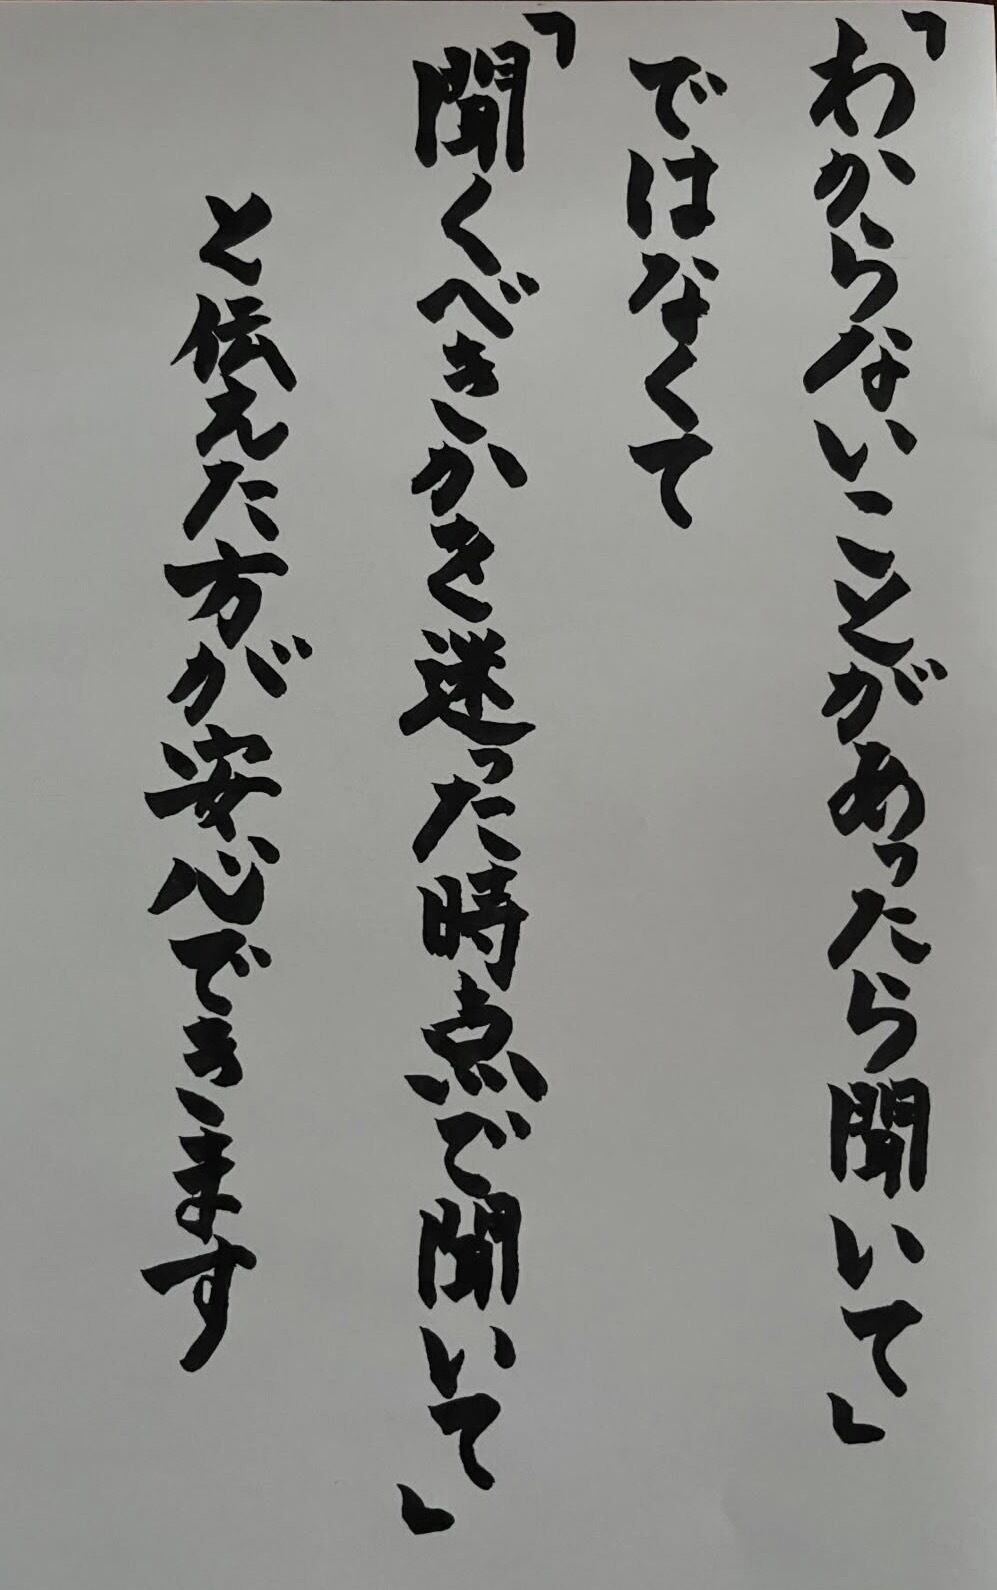 「わからないことがあったら聞いて」
ではなくて
「聞くべきかを迷った時点で聞いて」
と伝えた方が安心できます